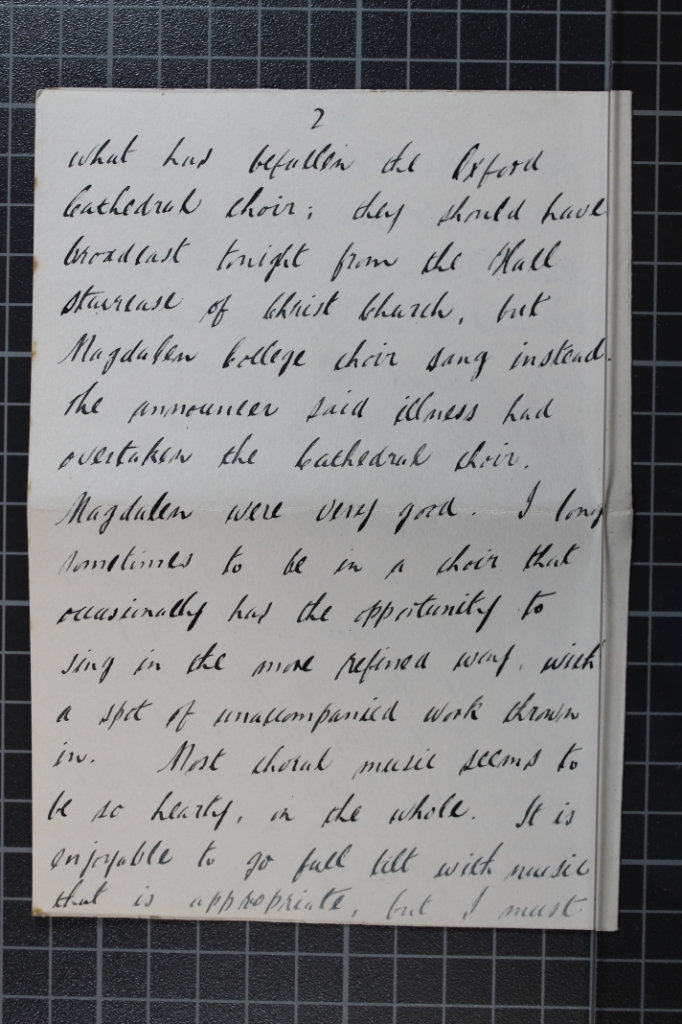 2
what has befallen the Oxford
Cathedral choir; they should have
broadcast tonight from the Hall
staircase of Christ Church, but
Magdalen College choir sang instead.
The announcer said illness had
overtaken the Cathedral choir.
Magdalen were very good. I long
sometimes to be in a choir that
occasionally has the opportunity to
sing in the more refined way, with
a spot of unaccompanied work thrown
in. Most choral music seems to
be so hearty, on the whole. It is
enjoyable to go full tilt with music
that is appropriate, but I must